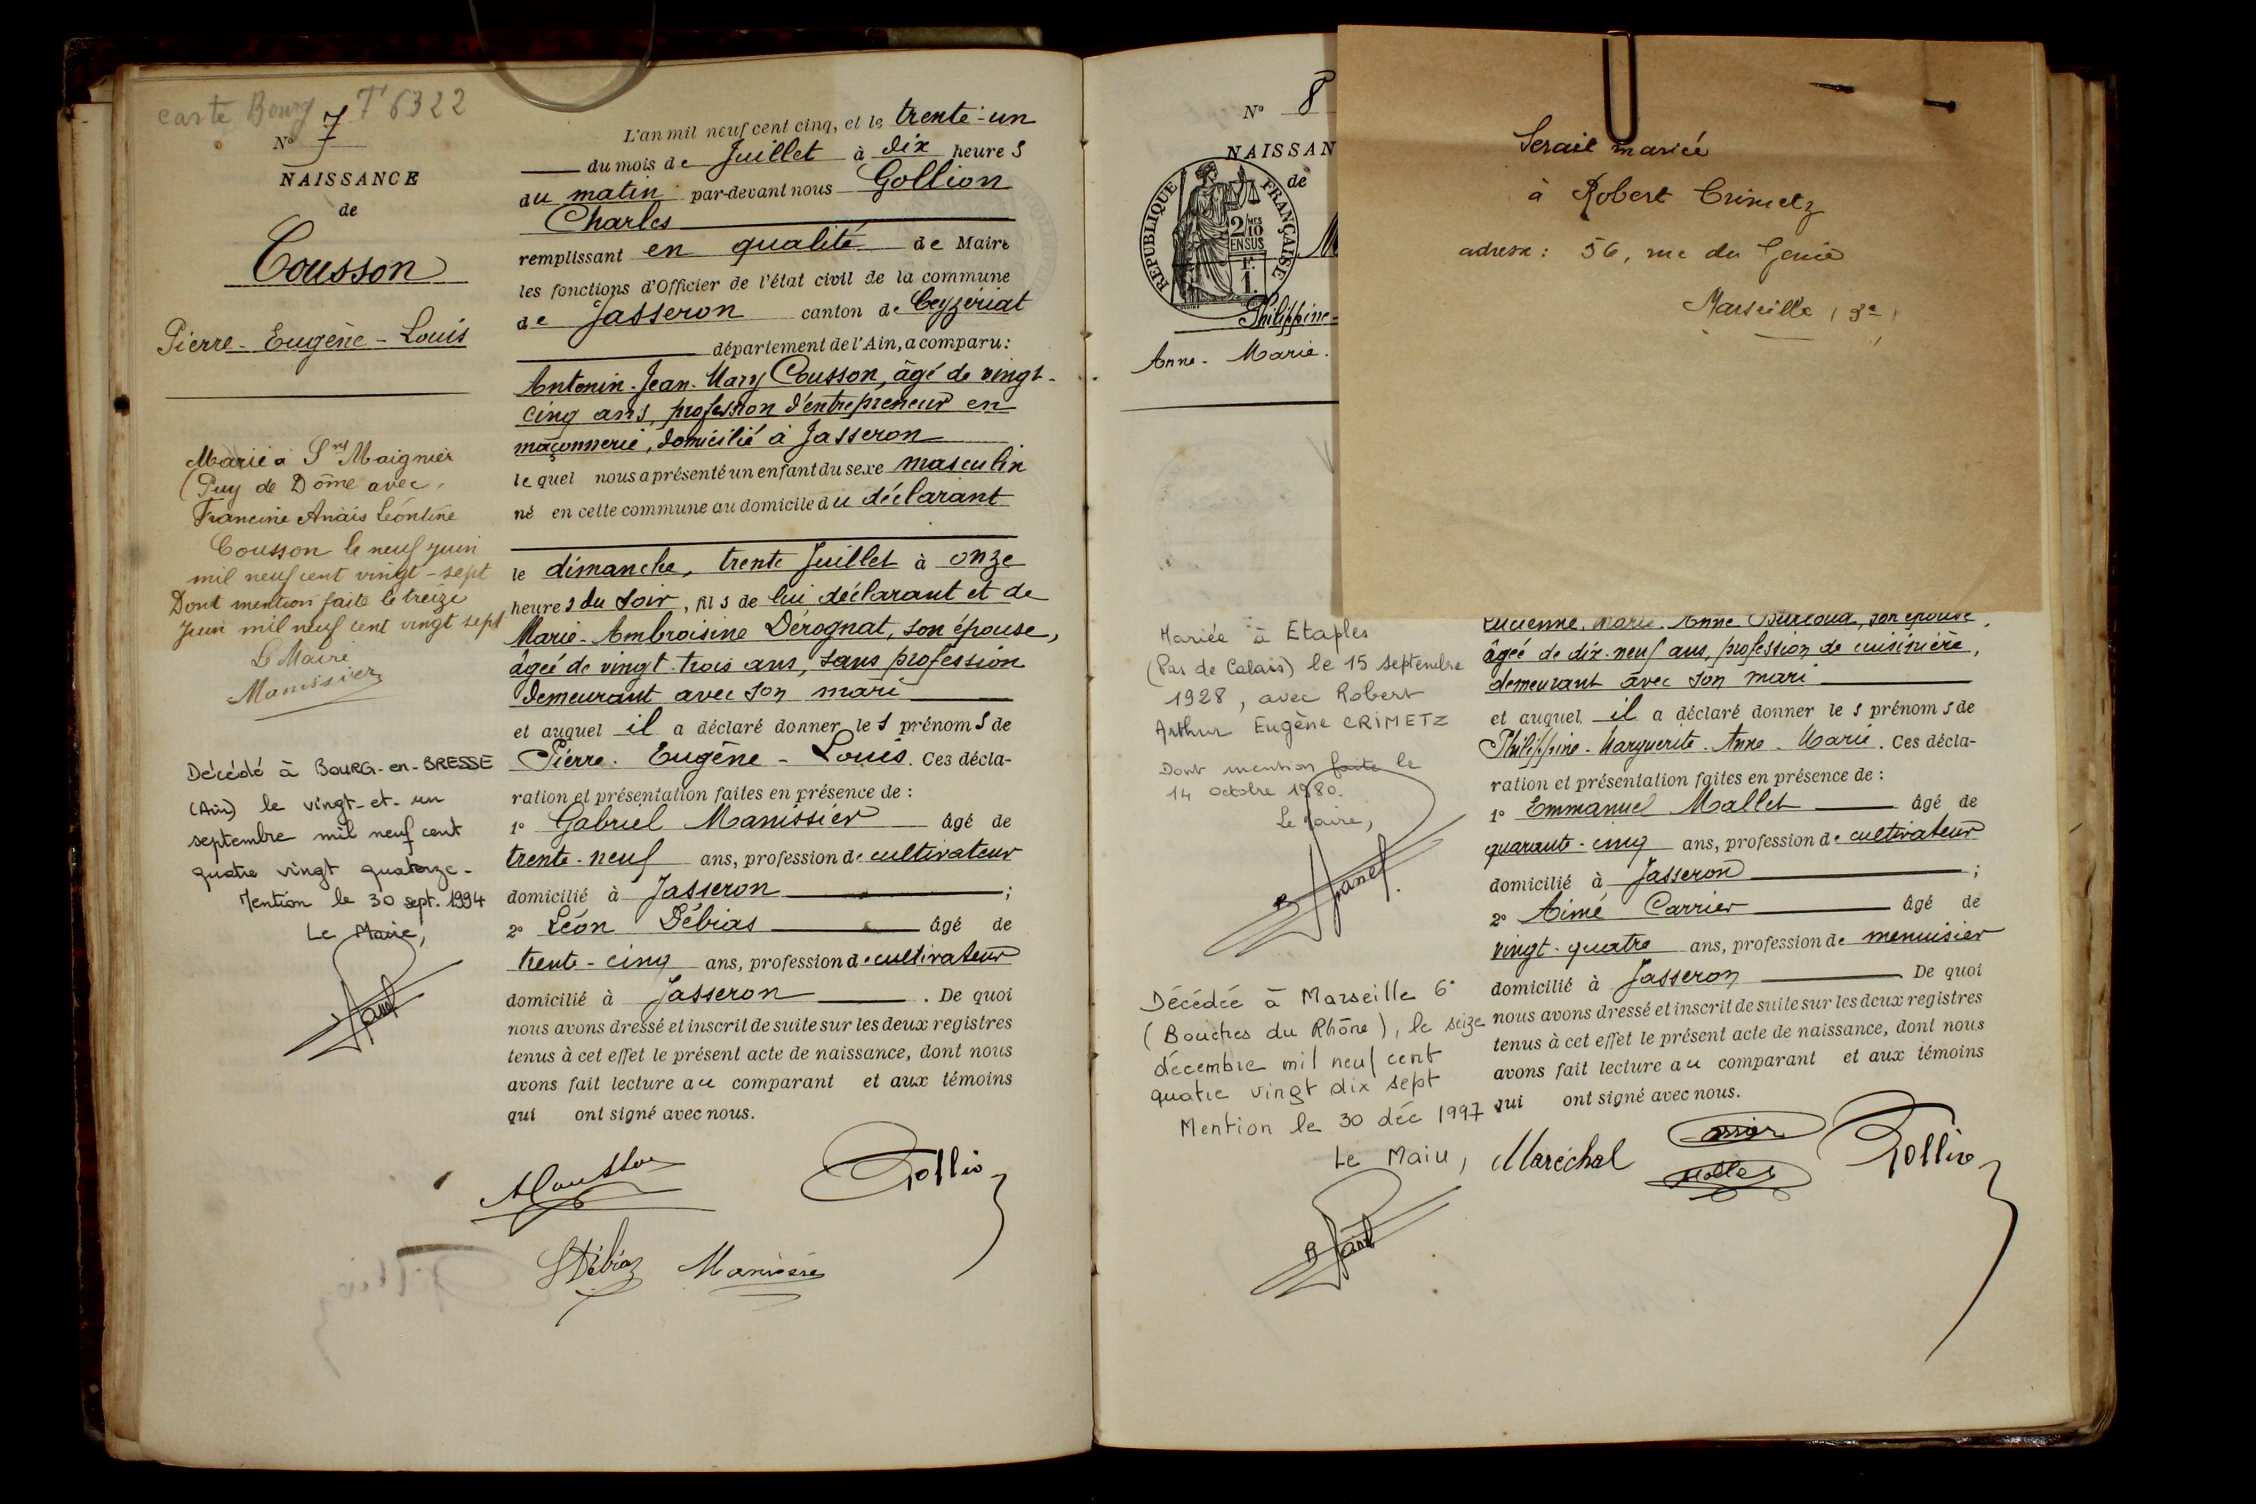 carte Bourg T 6322
N° 7
NAISSANCE
de
Cousson
Pierre - Eugène - Louis
Marié à St Maignier
(Puy de Dôme avec
Francine Anaïs Léontine
Cousson le neuf juin
mil neuf cent vingt-sept
Dont mention faite le treize
juin mil neuf cent vingt sept
Le Maire
Manissier
Décédé à BOURG-en-BRESSE
(Ain) le vingt-et-un
septembre mil neuf cent
quatre vingt quatorze-
Mention le 30 sept. 1994
Le Maire,
L'an mil neuf cent cinq, et le trente-un
du mois de Juillet à dix heures
du matin par-devant nous Gollion
Charles
remplissant en qualité de Maire
les fonctions d'Officier de l'état civil de la commune
de Jasseron canton de Ceyzériat
département de l'Ain, a comparu:
Antonin-Jean-Mary Cousson, âgé de vingt-
cinq ans, profession d'entrepreneur en
maçonnerie, domicilié à Jasseron
lequel nous a présenté un enfant du sexe masculin
né en cette commune au domicile du déclarant
le dimanche, trente Juillet à onze
heures du soir, fils de lui déclarant et de
Marie-Ambroisine Dérognat, son épouse,
âgée de vingt-trois ans, sans profession
demeurant avec son mari
et auquel il a déclaré donner les prénoms de
Pierre - Eugène - Louis. Ces décla-
ration et présentation faites en présence de :
1° Gabriel Manissier âgé de
trente-neuf ans, profession de cultivateur
domicilié à Jasseron ;
2° Léon Débias âgé de
trente-cinq ans, profession de cultivateur
domicilié à Jasseron. De quoi
nous avons dressé et inscrit de suite sur les deux registres
tenus à cet effet le présent acte de naissance, dont nous
avons fait lecture au comparant et aux témoins
qui ont signé avec nous.
Gollion
Débias Manissier
N° 8
NAISSAN
de
RÉPUBLIQUE FRANÇAISE
2/10
EN SUS
F.
1.
M
Philippine-
Anne - Marie.
Serait mariée
à Robert Crimetz
adresse : 56, rue du Génie
Marseille (3e)
Mariée à Etaples
(Pas de Calais) le 15 septembre
1928, avec Robert
Arthur Eugène CRIMETZ
Dont mention faite le
14 octobre 1980.
Le Maire,
Décédée à Marseille 6°
(Bouches du Rhône), le seize
décembre mil neuf cent
quatre vingt dix sept
Mention le 30 déc 1997
Le Maire,
Lucienne-Marie-Anne, son épouse
âgée de dix-neuf ans, profession de cuisinière,
demeurant avec son mari
et auquel il a déclaré donner les prénoms de
Philippine-Marguerite-Anne-Marie. Ces décla-
ration et présentation faites en présence de :
1° Emmanuel Mallet âgé de
quarante-cinq ans, profession de cultivateur
domicilié à Jasseron ;
2° Aimé Carrier âgé de
vingt-quatre ans, profession de menuisier
domicilié à Jasseron. De quoi
nous avons dressé et inscrit de suite sur les deux registres
tenus à cet effet le présent acte de naissance, dont nous
avons fait lecture au comparant et aux témoins
qui ont signé avec nous.
Maréchal Carrier Gollion
Mallet